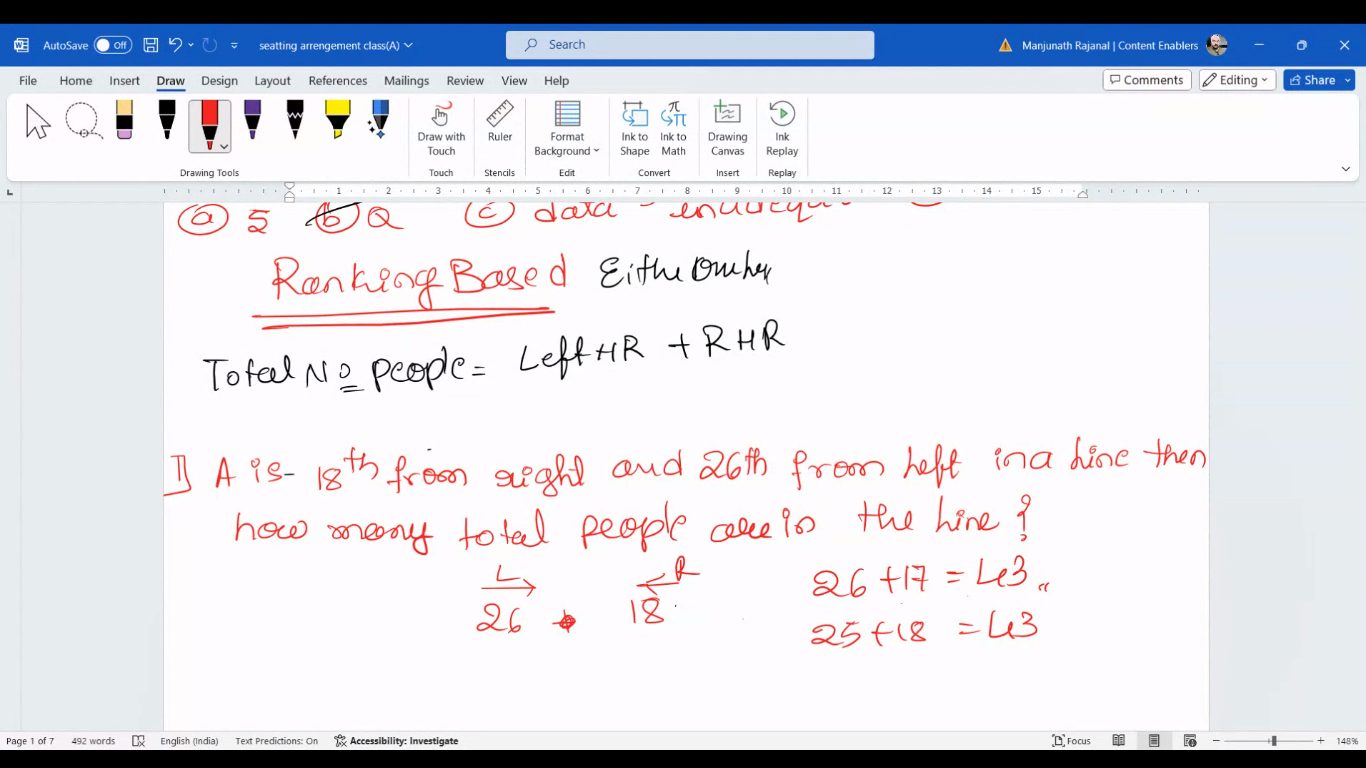 AutoSave Off seatting arrangement class(A) Search Manjunath Rajanal | Content Enablers
File Home Insert Draw Design Layout References Mailings Review View Help Comments Editing Share
Draw with Touch Ruler Format Background Ink to Shape Ink to Math Drawing Canvas Ink Replay
Drawing Tools Touch Stencils Edit Convert Insert Replay
1 2 3 4 5 6 7 8 9 10 11 12 13 14 15
(a) 5 (b) 2 (c) data -
Ranking Based
Total No people = Left HR + RHR
1] A is - 18th from right and 26th from left in a line then
how many total people are in the line ?
L R
26 18
26 + 17 = 43 "
25 + 18 = 43
Page 1 of 7 492 words English (India) Text Predictions: On Accessibility: Investigate Focus 148%